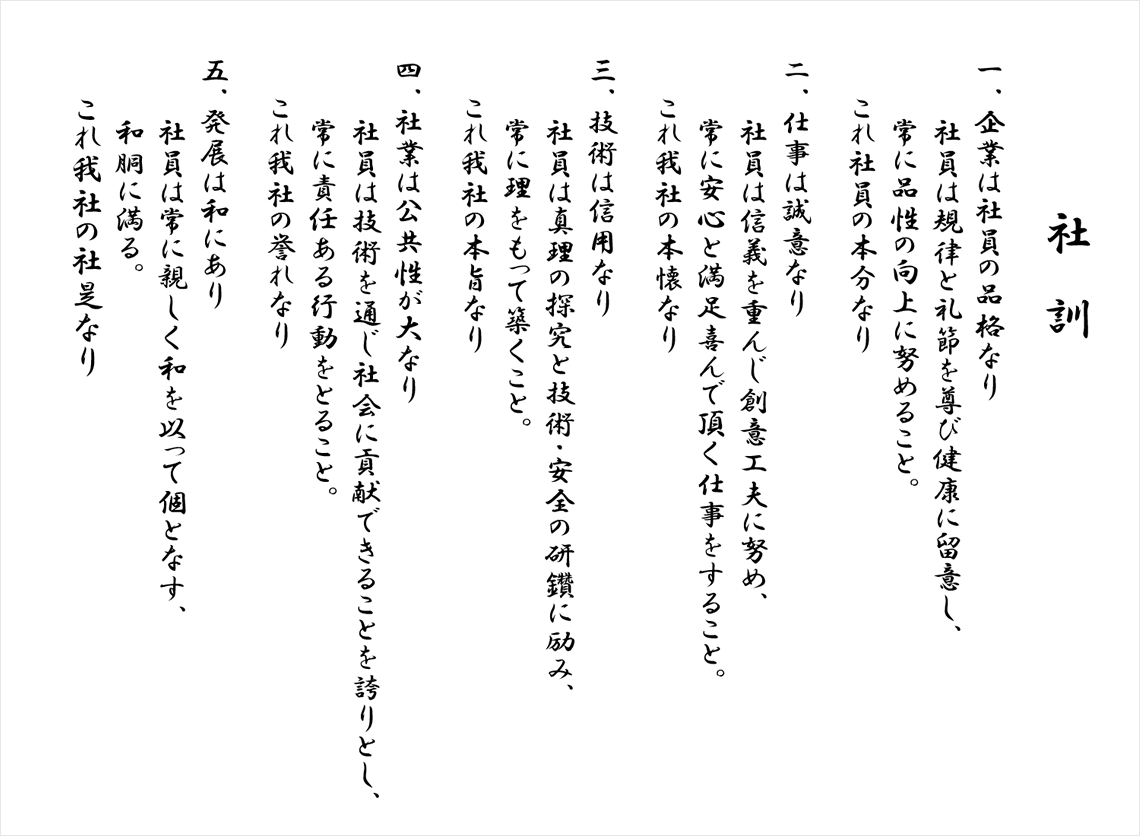 社訓
一、企業は社員の品格なり
社員は規律と礼節を尊び健康に留意し、
常に品性の向上に努めること。
これ社員の本分なり
二、仕事は誠意なり
社員は信義を重んじ創意工夫に努め、
常に安心と満足喜んで頂く仕事をすること。
これ我社の本懐なり
三、技術は信用なり
社員は真理の探究と技術・安全の研鑽に励み、
常に理をもって築くこと。
これ我社の本旨なり
四、社業は公共性が大なり
社員は技術を通じ社会に貢献できることを誇りとし、
常に責任ある行動をとること。
これ我社の誉れなり
五、発展は和にあり
社員は常に親しく和を以って個となす、
和胴に満る。
これ我社の社是なり